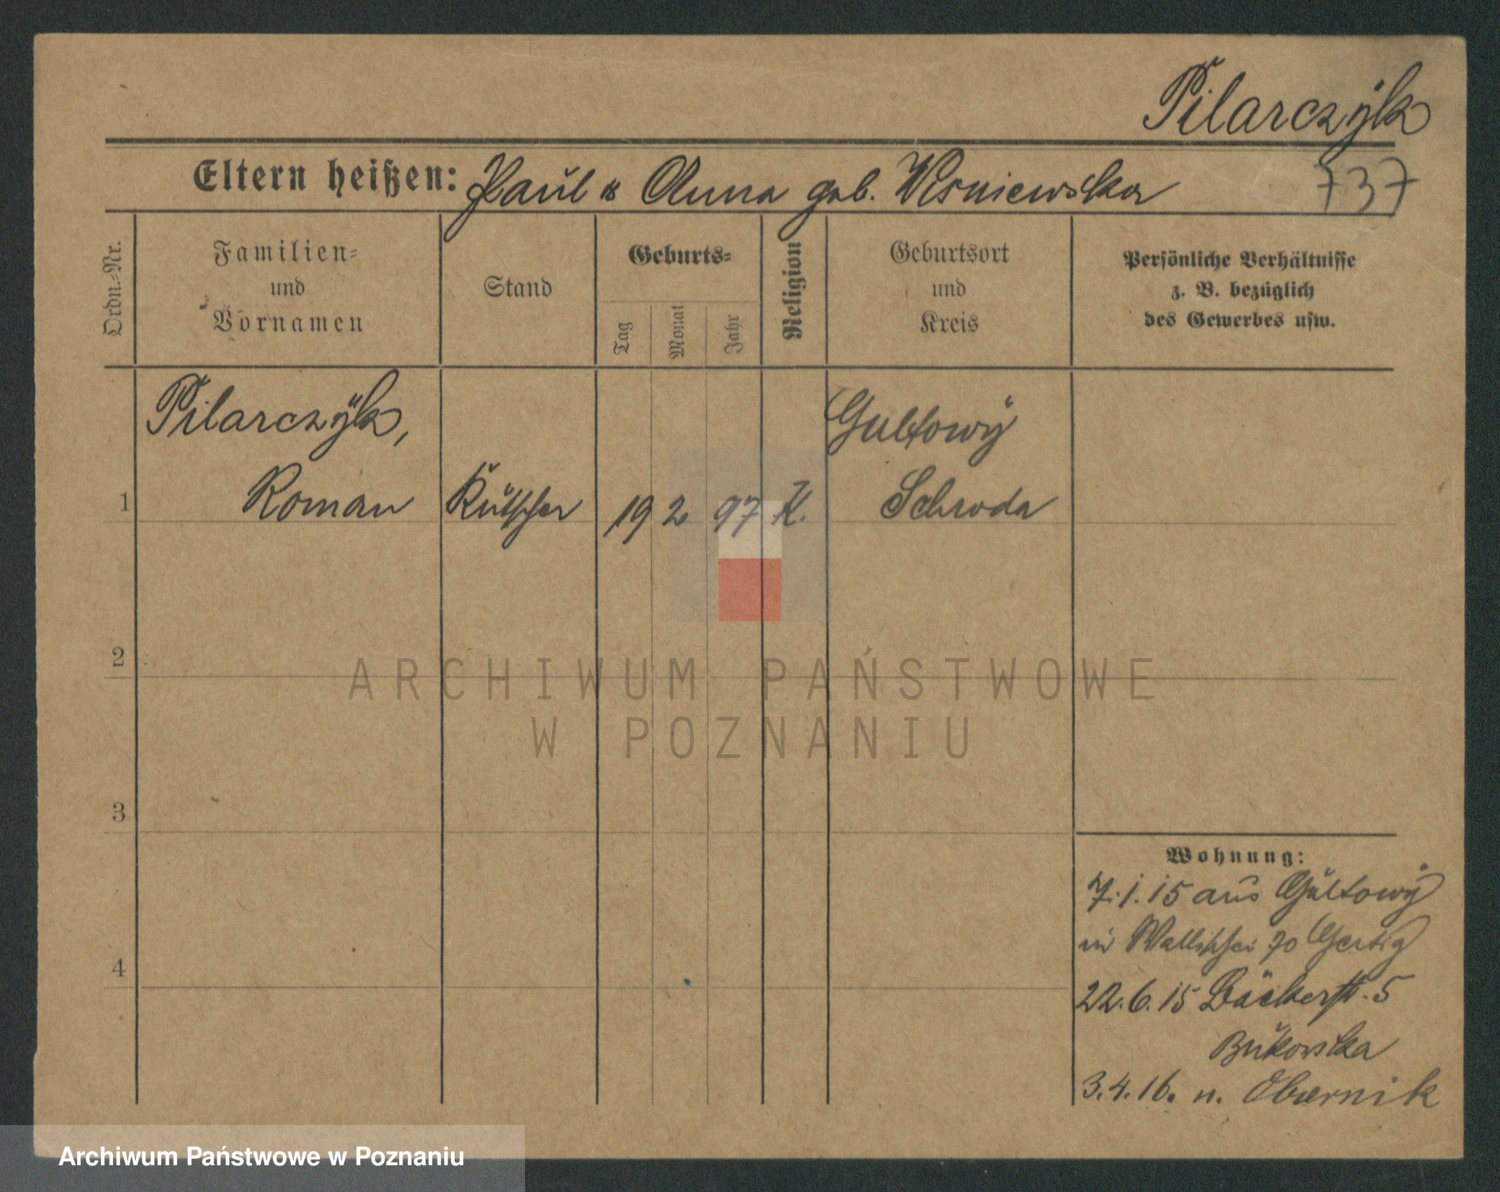 Pilarczÿk
737
Eltern heißen: Paul & Anna geb. Wisniewska
Ordn.=Nr.
Familien=
und
Vornamen
Stand
Geburts=
Tag
Monat
Jahr
Religion
Geburtsort
und
Kreis
Persönliche Verhältnisse
z. B. bezüglich
des Gewerbes usw.
1
Pilarczÿk,
Roman
Kutscher
19 2 97 K.
Gultowÿ
Schroda
2
ARCHIWUM PAŃSTWOWE
W POZNANIU
3
4
Wohnung:
7.1.15 aus Gultowÿ
in Wallischei 70 Gertig
22.6.15 Bäckerstr. 5
Bukowska
3.4.16. n. Obernik
Archiwum Państwowe w Poznaniu